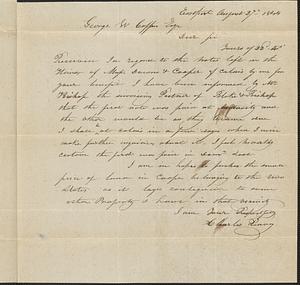 Eastport August 27th 1844
George W Coffin Esqr
Dear Sir
Yours of 22d
Received in regard to the Notes left in the
Hands of Messrs and Cooper of Calais by me for
your benefit I have been informed by Mr
Bishop the surviving Partner of &
that the first note was paid at and
the other would be as they became due
I shall at Calais in a few days when I will
make further inquiries about it I feel
certain the first was paid in last
I am in hopes to purchase the small
piece of land in Cooper belonging to the two
States as it lays contiguous to some
other Property I have in that vicinity
I am Your
Charles Peavey